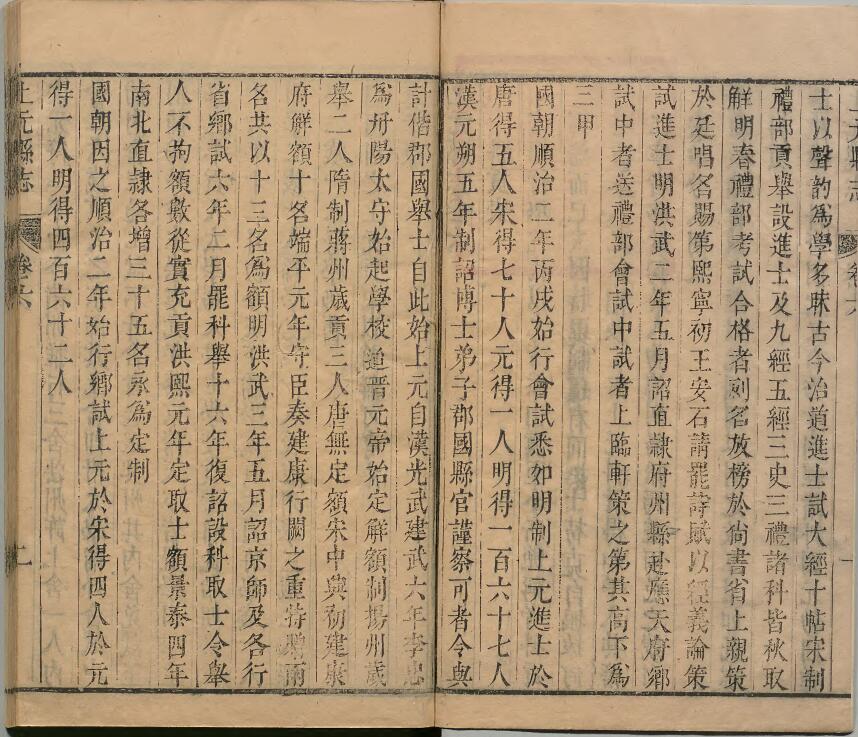 上元縣志
卷六
一
士以聲韵爲學多昧古今治道進士試大經十帖宋制
禮部貢舉設進士及九經五經三史三禮諸科皆秋取
解明春禮部考試合格者列名放榜於尚書省上親策
於廷唱名賜第熙寧初王安石請罷詩賦以經義論策
試進士明洪武二年五月詔直隸府州縣赴應天府鄉
試中者送禮部會試中試者上臨軒策之第其高下爲
三甲
國朝順治二年丙戌始行會試悉如明制上元進士於
唐得五人宋得七十人元得一人明得一百六十七人
漢元朔五年制詔博士弟子郡國縣官謹察可者令與
計偕郡國舉士自此始上元自漢光武建武六年李忠
爲丹陽太守始起學校逌晉元帝始定解額制揚州歲
舉二人隋制蔣州歲貢三人唐無定額宋中興初建康
府解額十名端平元年守臣奏建康行闕之重特增兩
名共以十三名爲額明洪武三年五月詔京師及各行
省鄉試六年二月罷科舉十六年復詔設科取士令舉
人不拘額數從實充貢洪熙元年定取士額景泰四年
南北直隸各增三十五名永爲定制
國朝因之順治二年始行鄉試上元於宋得四人於元
得一人明得四百六十二人
上元縣志
卷六